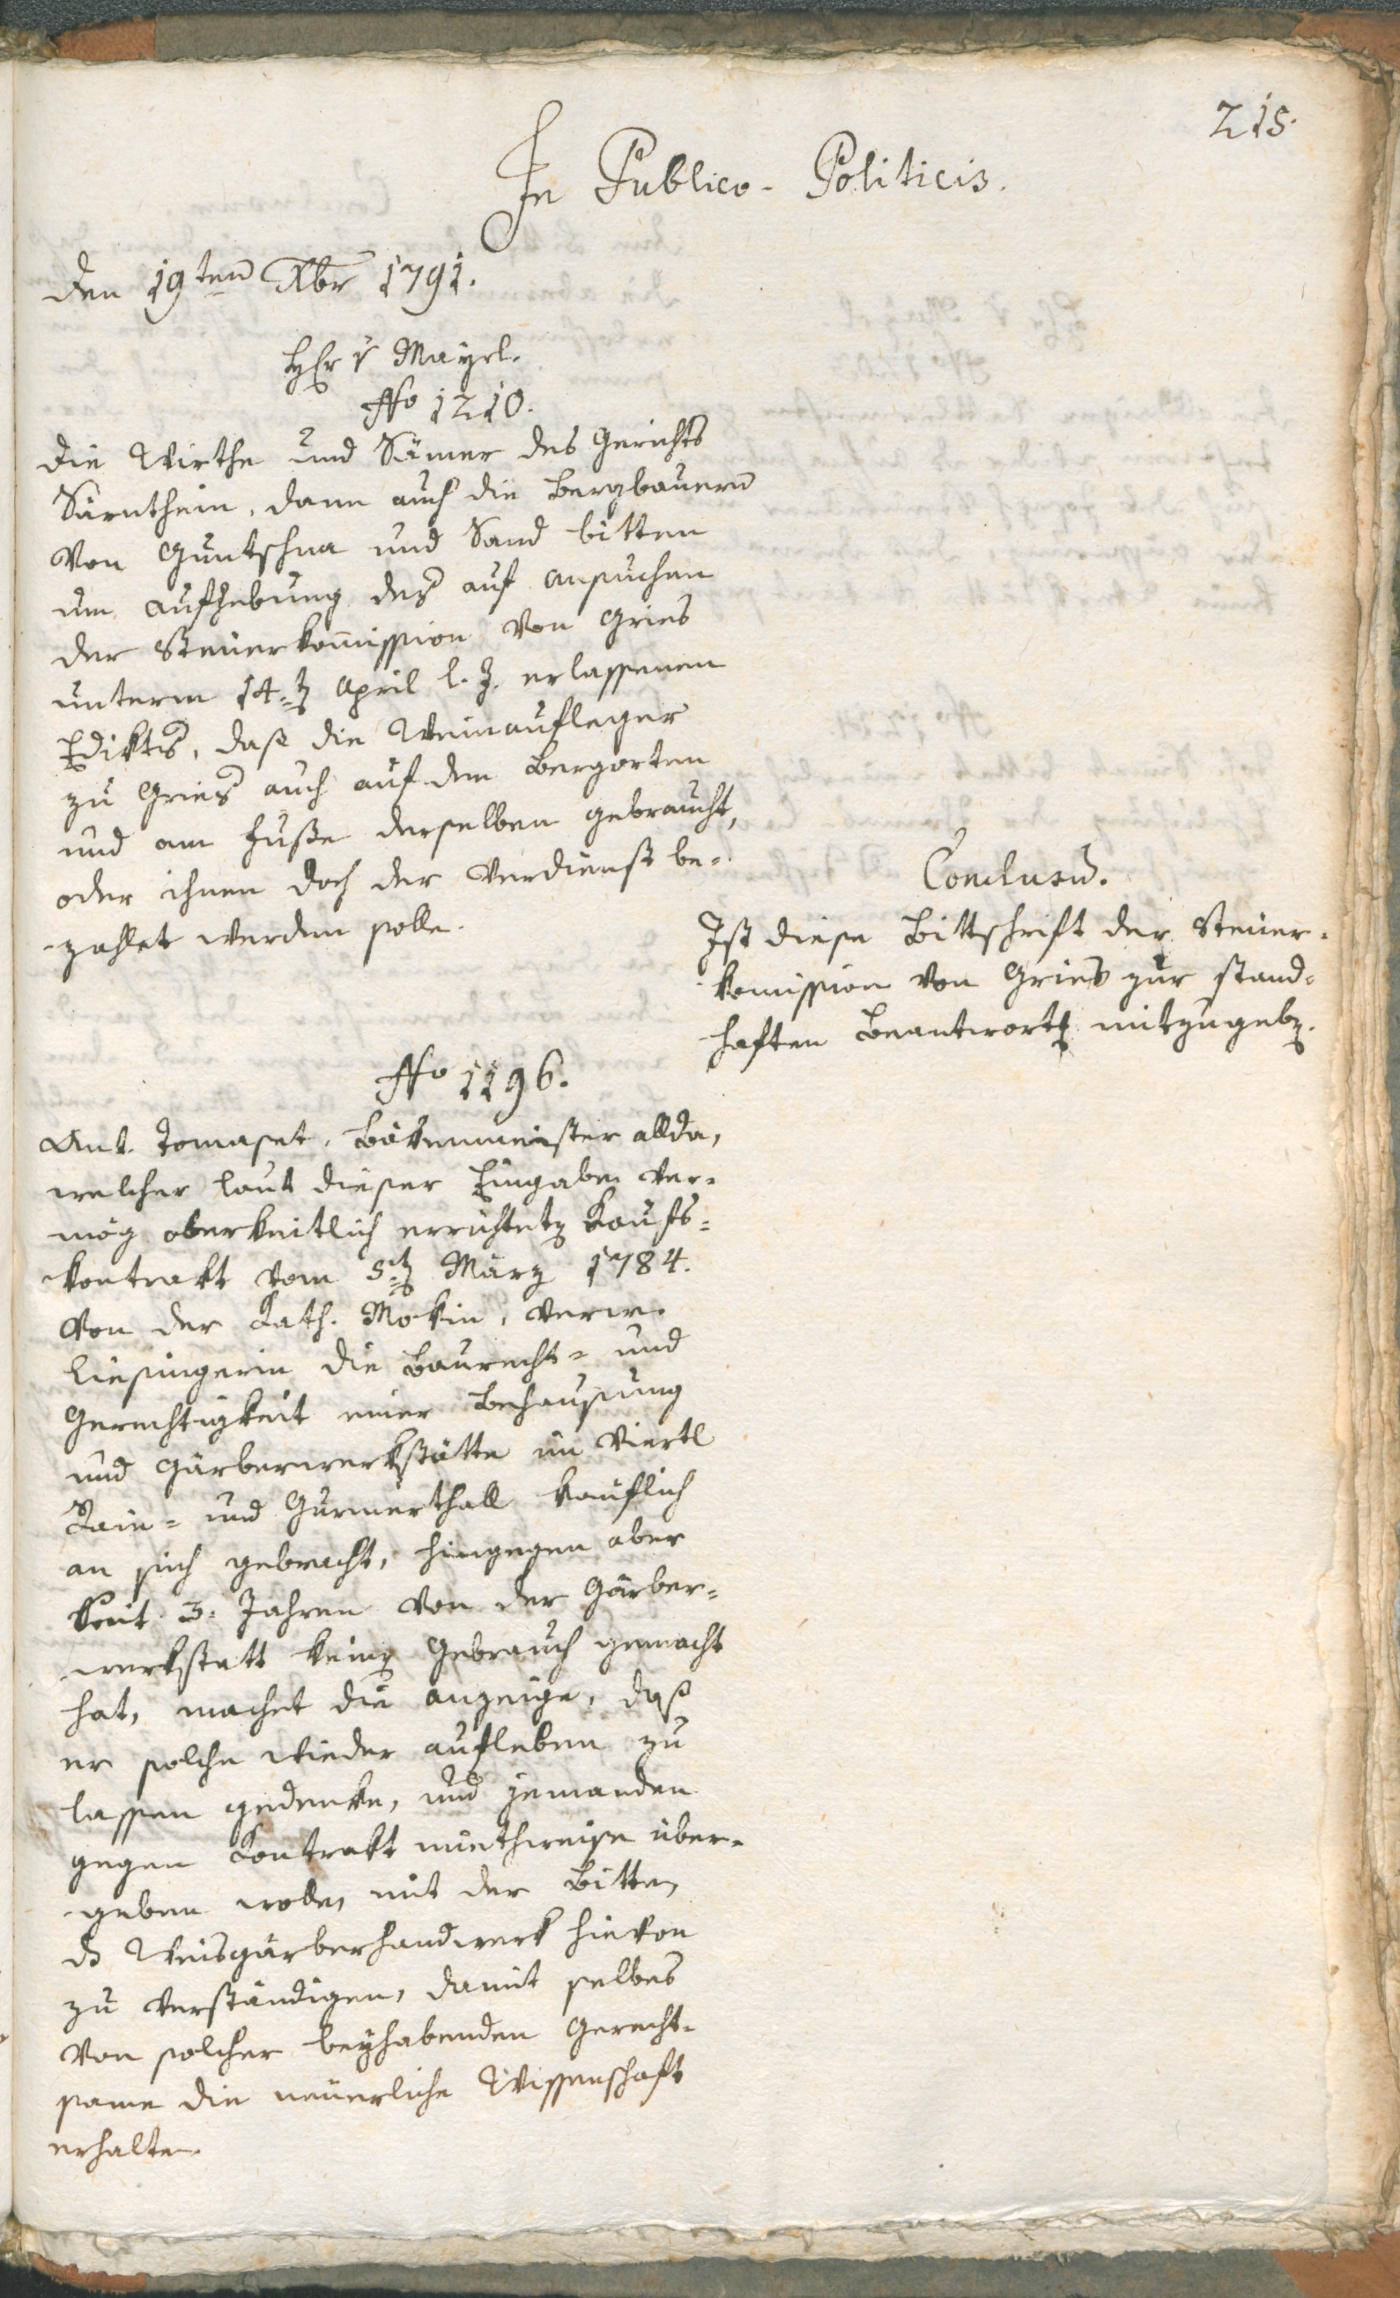 215.
In Publico-Politicis.
Den 19ten Xbr 1791.
Hr v Mayrl.
No 1210.
Die Wirthe und Sämer des Gerichts
Särnthein, dann auch die Bergbauern
von Guntschna und Sand bitten
um Aufhebung des auf Ansuchen
der Steuerkom̅ission von Gries
unterm 14.ten April l. J. erlassenen
Edikts, daß die Weinaufleger
zu Gries auch auf den Bergorten
und am Fuße derselben gebraucht,
oder ihnen doch der Verdienst be-
zahlet werden solle.
Conclusum.
Ist diese Bittschrift der Steuer-
komission von Gries zur stand-
haften Beantwortg mitzugeben.
No 1196.
Ant. Tomaset, Bäkenmeister allda,
welcher laut dieser Eingabe ver-
mög oberkeitlich errichteten Kaufs-
kontrakt vom 5ten März 1784.
von der Kath. Mokin, verw.
Liesingerin die Baurecht- und
Gerechtigkeit einer Behausung
und Gärberwerkstätte im Viertl
Rain- und Gurmerthall käuflich
an sich gebracht, hingegen aber
seit 3. Jahren von der Gärber-
werkstatt keinen Gebrauch gemacht
hat, machet die Anzeige, daß
er solche wieder aufleben zu
lassen gedenke, und jemanden
gegen Kontrakt miethweise über-
geben wolle, mit der Bitte,
ds Weisgärberhandwerk hievon
zu verständigen, damit selbes
von solcher beyhabenden Gerecht-
same die neuerliche Wissenschaft
erhalte.